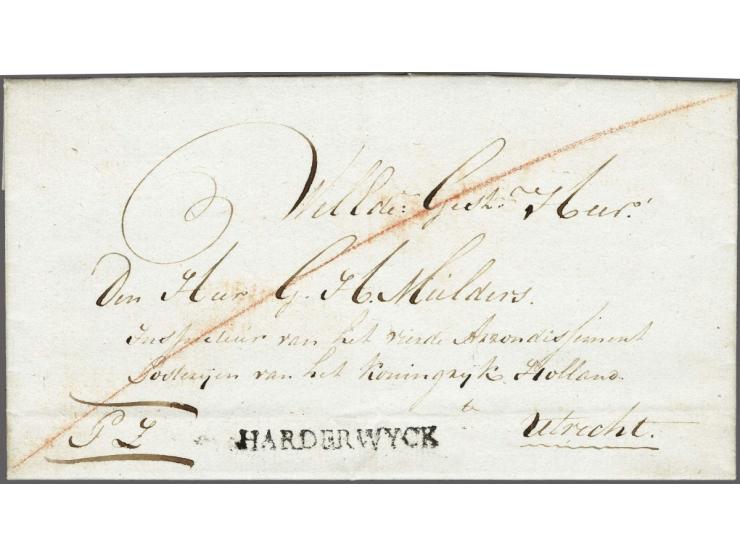 WelEde: Gestr. Heer!
Den Heer G. H. Mülders.
Inspecteur van het vierde Arrondissement
Posterijen van het Koningryk Holland
te
P Z HARDERWYCK Utrecht.